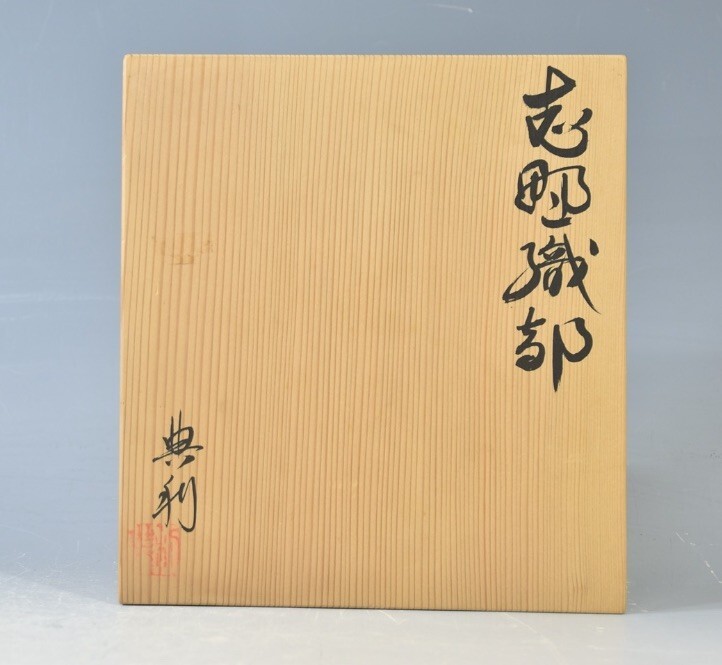 志野織部
典利